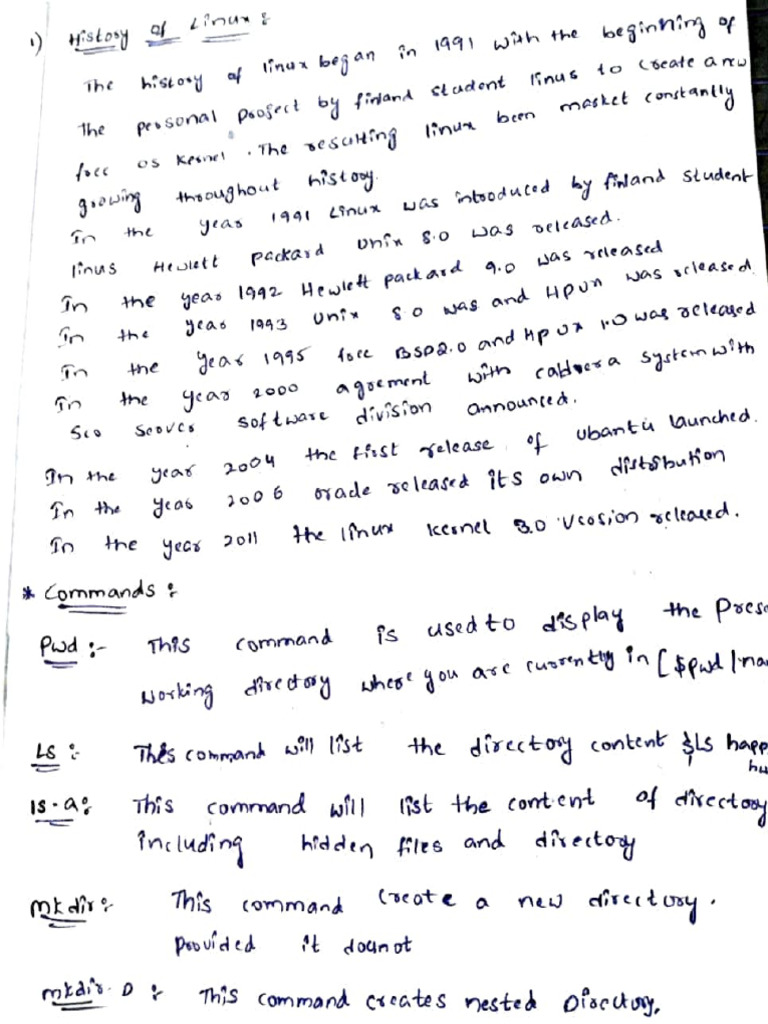 1) History of Linux :
The history of linux began in 1991 with the beginning of
The personal project by finland student linus to create a new
free os kernel . The resulting linux been market constantly
growing throughout history.
In the year 1991 Linux was introduced by finland student
linus Hewlett packard Unix 8.0 was released.
In the year 1992 Hewlett packard 9.0 was released
In the year 1993 Unix 8 0 was and HPUX was released.
In the year 1995 free BSD2.0 and Hp UX 1.0 was released
In the year 2000 agrement with caldera system with
Sco Server software division announced.
In the year 2004 the first release of ubantu launched.
In the year 2006 oracle released its own distribution
In the year 2011 the linux kernel 3.0 version released.
* Commands :
Pwd :- This command is used to display the Prese
working directory where you are currently in [$pwd /
Ls : This command will list the directory content $Ls happ
ls-a: This command will list the content of directory
including hidden files and directory
mkdir: This command create a new directory.
provided it
mkdir- This command creates nested Directory.